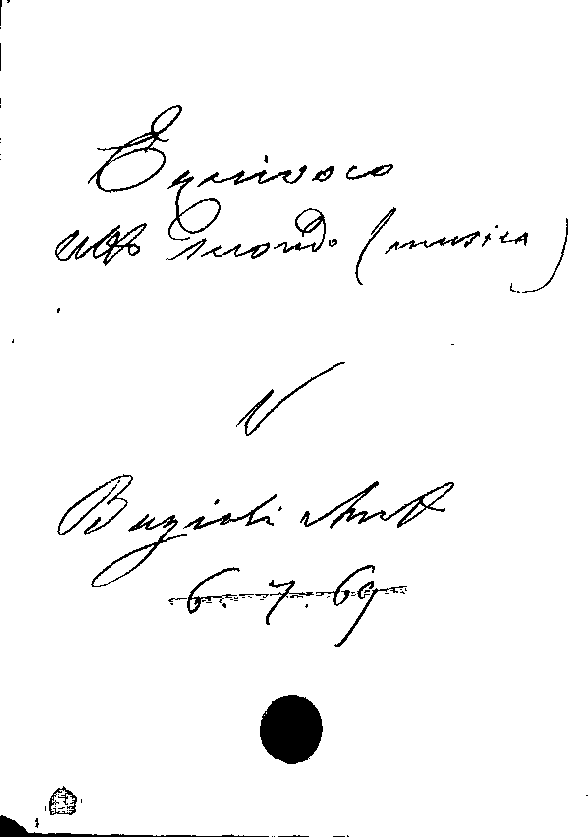 Equivoco
atto Secondo (musica)
V
Bazioli Ant
6. 7. 69